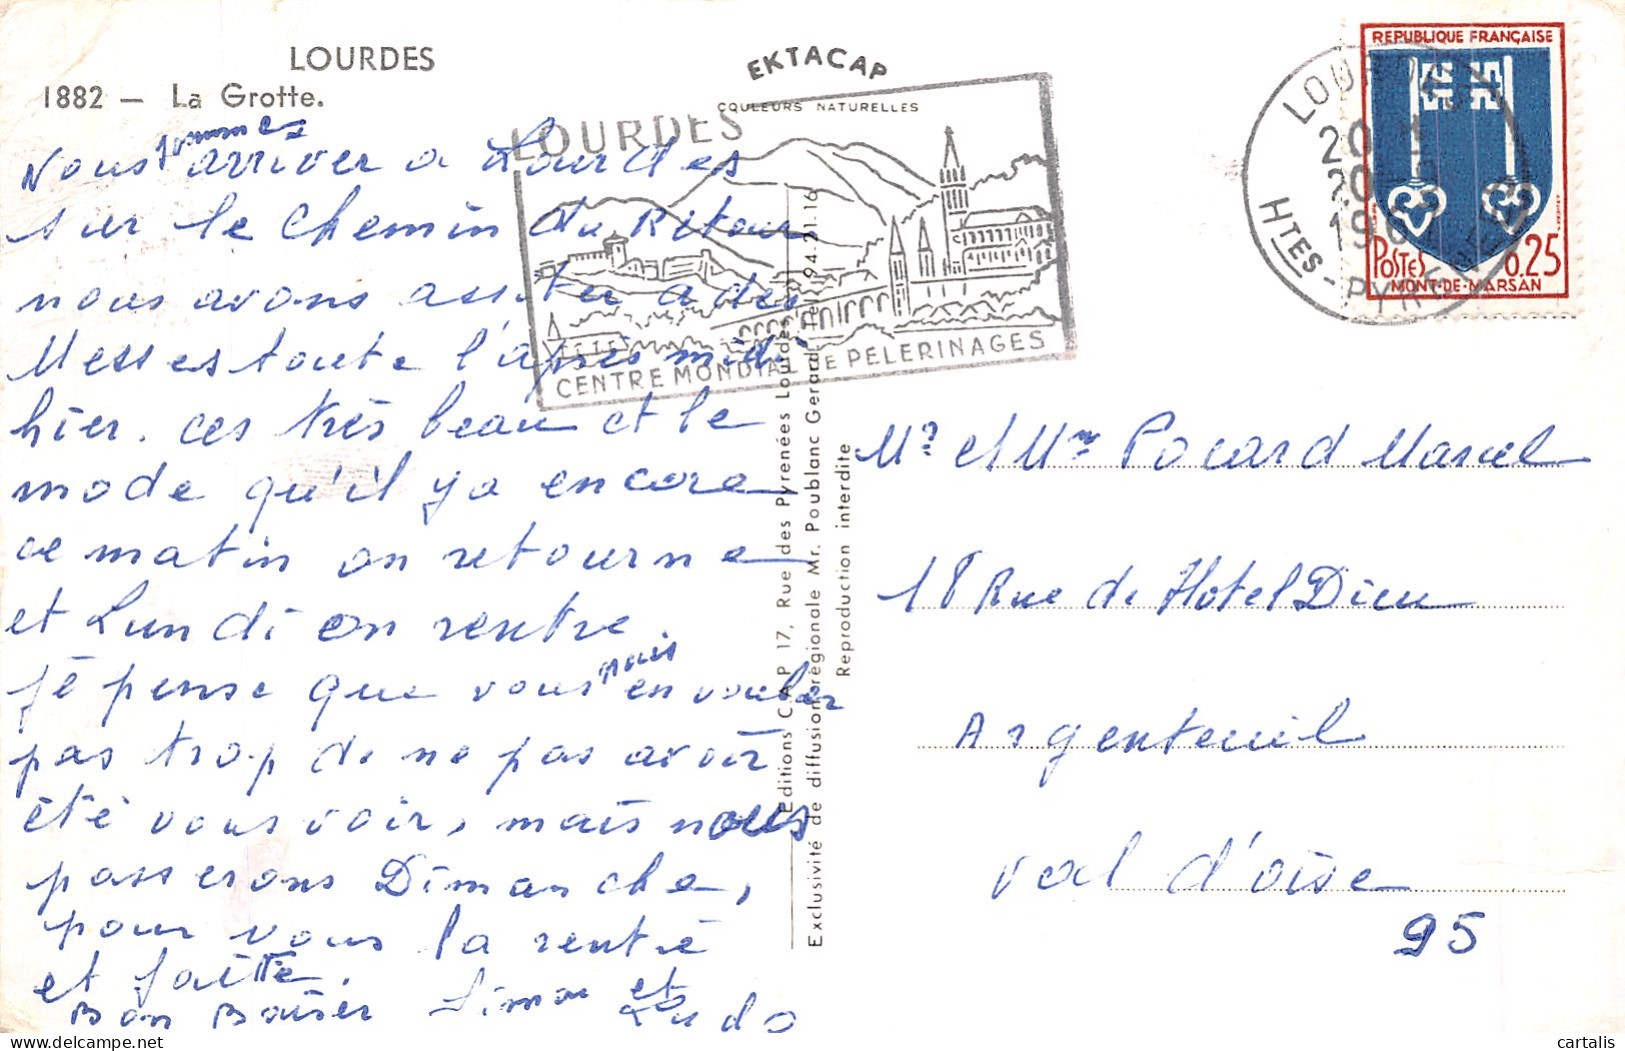 LOURDES
1882 – La Grotte.
EKTACAP
COULEURS NATURELLES
LOURDES
CENTRE MONDIAL DE PELERINAGES
REPUBLIQUE FRANÇAISE
POSTES 0.25
MONT-DE-MARSAN
LOURDES
20
196
HTES-PYRENEES
Nous sommes arriver a Lourdes
sur le chemin du Retour
nous avons assister a des
Messes toute l'après midi
hier. ces très beau et le
mode qu'il y a encore
ce matin on retourne
et Lundi on rentre.
Je pense que vous nous en vouler
pas trop de ne pas avoir
été vous voir, mais nous
passerons Dimanche,
pour vous la rentré
et faitte.
Bon Baiser Simone et
Ludo
Editions C.A.P 17, Rue des Pyrenées Lourdes
Exclusivité de diffusion régionale Mr. Poublanc Gerard. Tel. 94.21.16
Reproduction interdite
Mr et Mme Pocard Marcel
18 Rue de Hotel Dieu
Argenteuil
val d'oise
95
cartalis